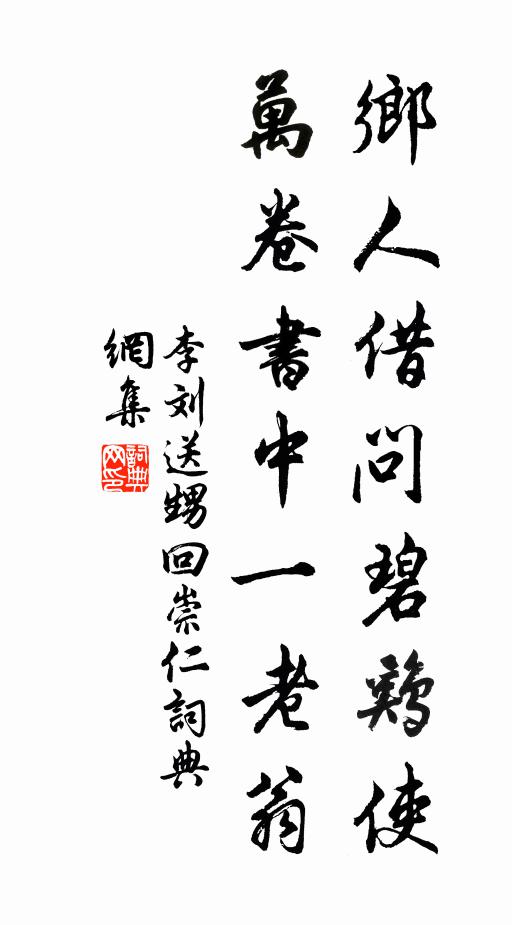 鄉人借問碧鷄使
萬卷書中一老翁
李刘送甥回崇仁詞典
網集
詞典
网印